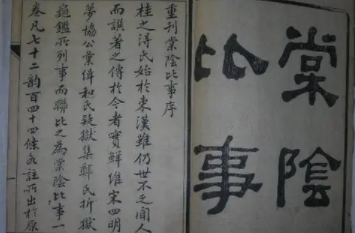 棠陰
比事
重刊棠陰比事序
桂之淂氏始於東漢雖仍世不乏聞人
而譔著之傳於今者實鮮維宋四明
夢協公彙緝和氏疑獄集鄭氏折獄
龜鑑所列事而聯比之為棠陰比事一
卷凡七十二韵百四十四條註所出於原